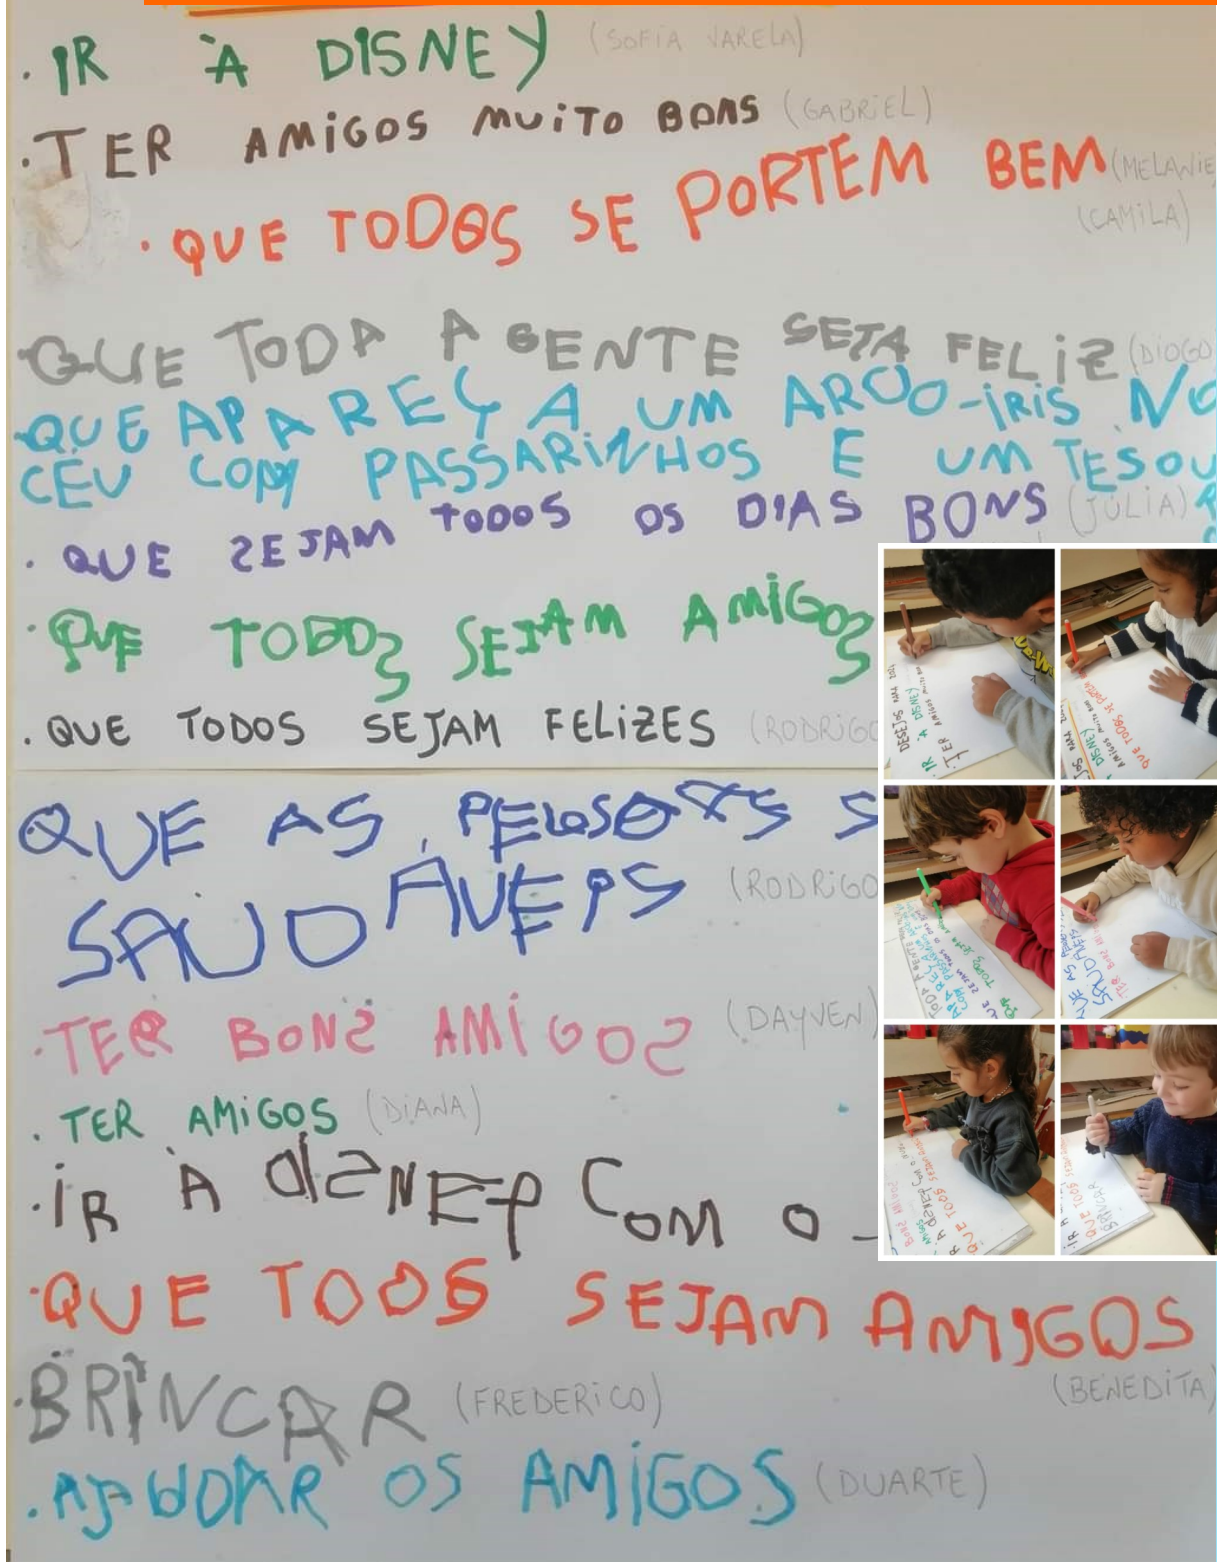 . IR À DISNEY (SOFIA VARELA)
. TER AMIGOS MUITO BONS (GABRIEL)
. QUE TODOS SE PORTEM BEM (MELANIE
(CAMILA)
QUE TODA A GENTE SETA FELIZ (DIOGO
QUE APAREÇA UM ARCO-ÍRIS NO
CÉU COM PASSARINHOS E UM TESOURO
. QUE SEJAM TODOS OS DIAS BONS (JÚLIA)
. QUE TODOS SEJAM AMIGOS
. QUE TODOS SEJAM FELIZES (RODRIGO
QUE AS PELSOAS S
SAUDÁVEIS (RODRIGO
. TER BONS AMIGOS (DAYVEN)
. TER AMIGOS (DIANA)
. IR À DISNEY COM O
. QUE TODS SEJAM AMIGOS
(BENEDITA)
. BRINCAR (FREDERICO)
. AJUDAR OS AMIGOS (DUARTE)